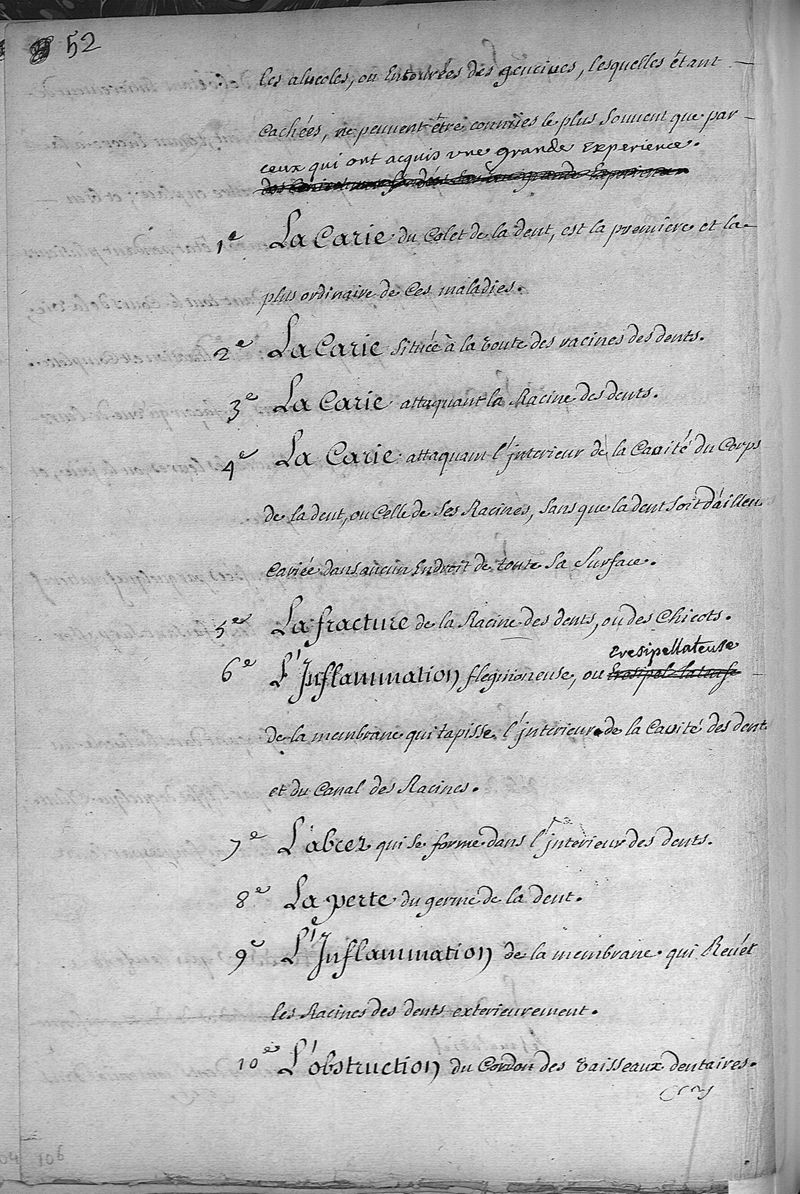 52
les alueoles, ou Entourées des gencives, lesquelles étant
Cachées, ne peuvent être connües le plus Souvent que par
ceux qui ont acquis une grande Experience.
1e La Carie du Colet de la dent, est la premiere et la
plus ordinaire de Ces maladies.
2e La Carie Située à la voute des racines des dents.
3e La Carie attaquant la Racine des dents.
4e La Carie attaquant l'jnterieur de la Cavité du Corps
de la dent, ou Celle de Ses Racines, Sans que la dent Soit d'ailleurs
Cariée dans aucun Endroit de toute Sa Surface.
5e La fracture de la Racine des dents, ou des Chicots.
Eresipellateuse
6e L'Jnflammation flegmoneuse, ou
de la membrane qui tapisse l'jnterieur de la Cavité des dents
et du Canal des Racines.
7e L'abcez qui se forme dans l'jnterieur des dents.
8e La perte du germe de la dent.
9e L'Jnflammation de la membrane qui Revét
les Racines des dents exterieurement.
10e L'obstruction du Cordon des vaisseaux dentaires.
106